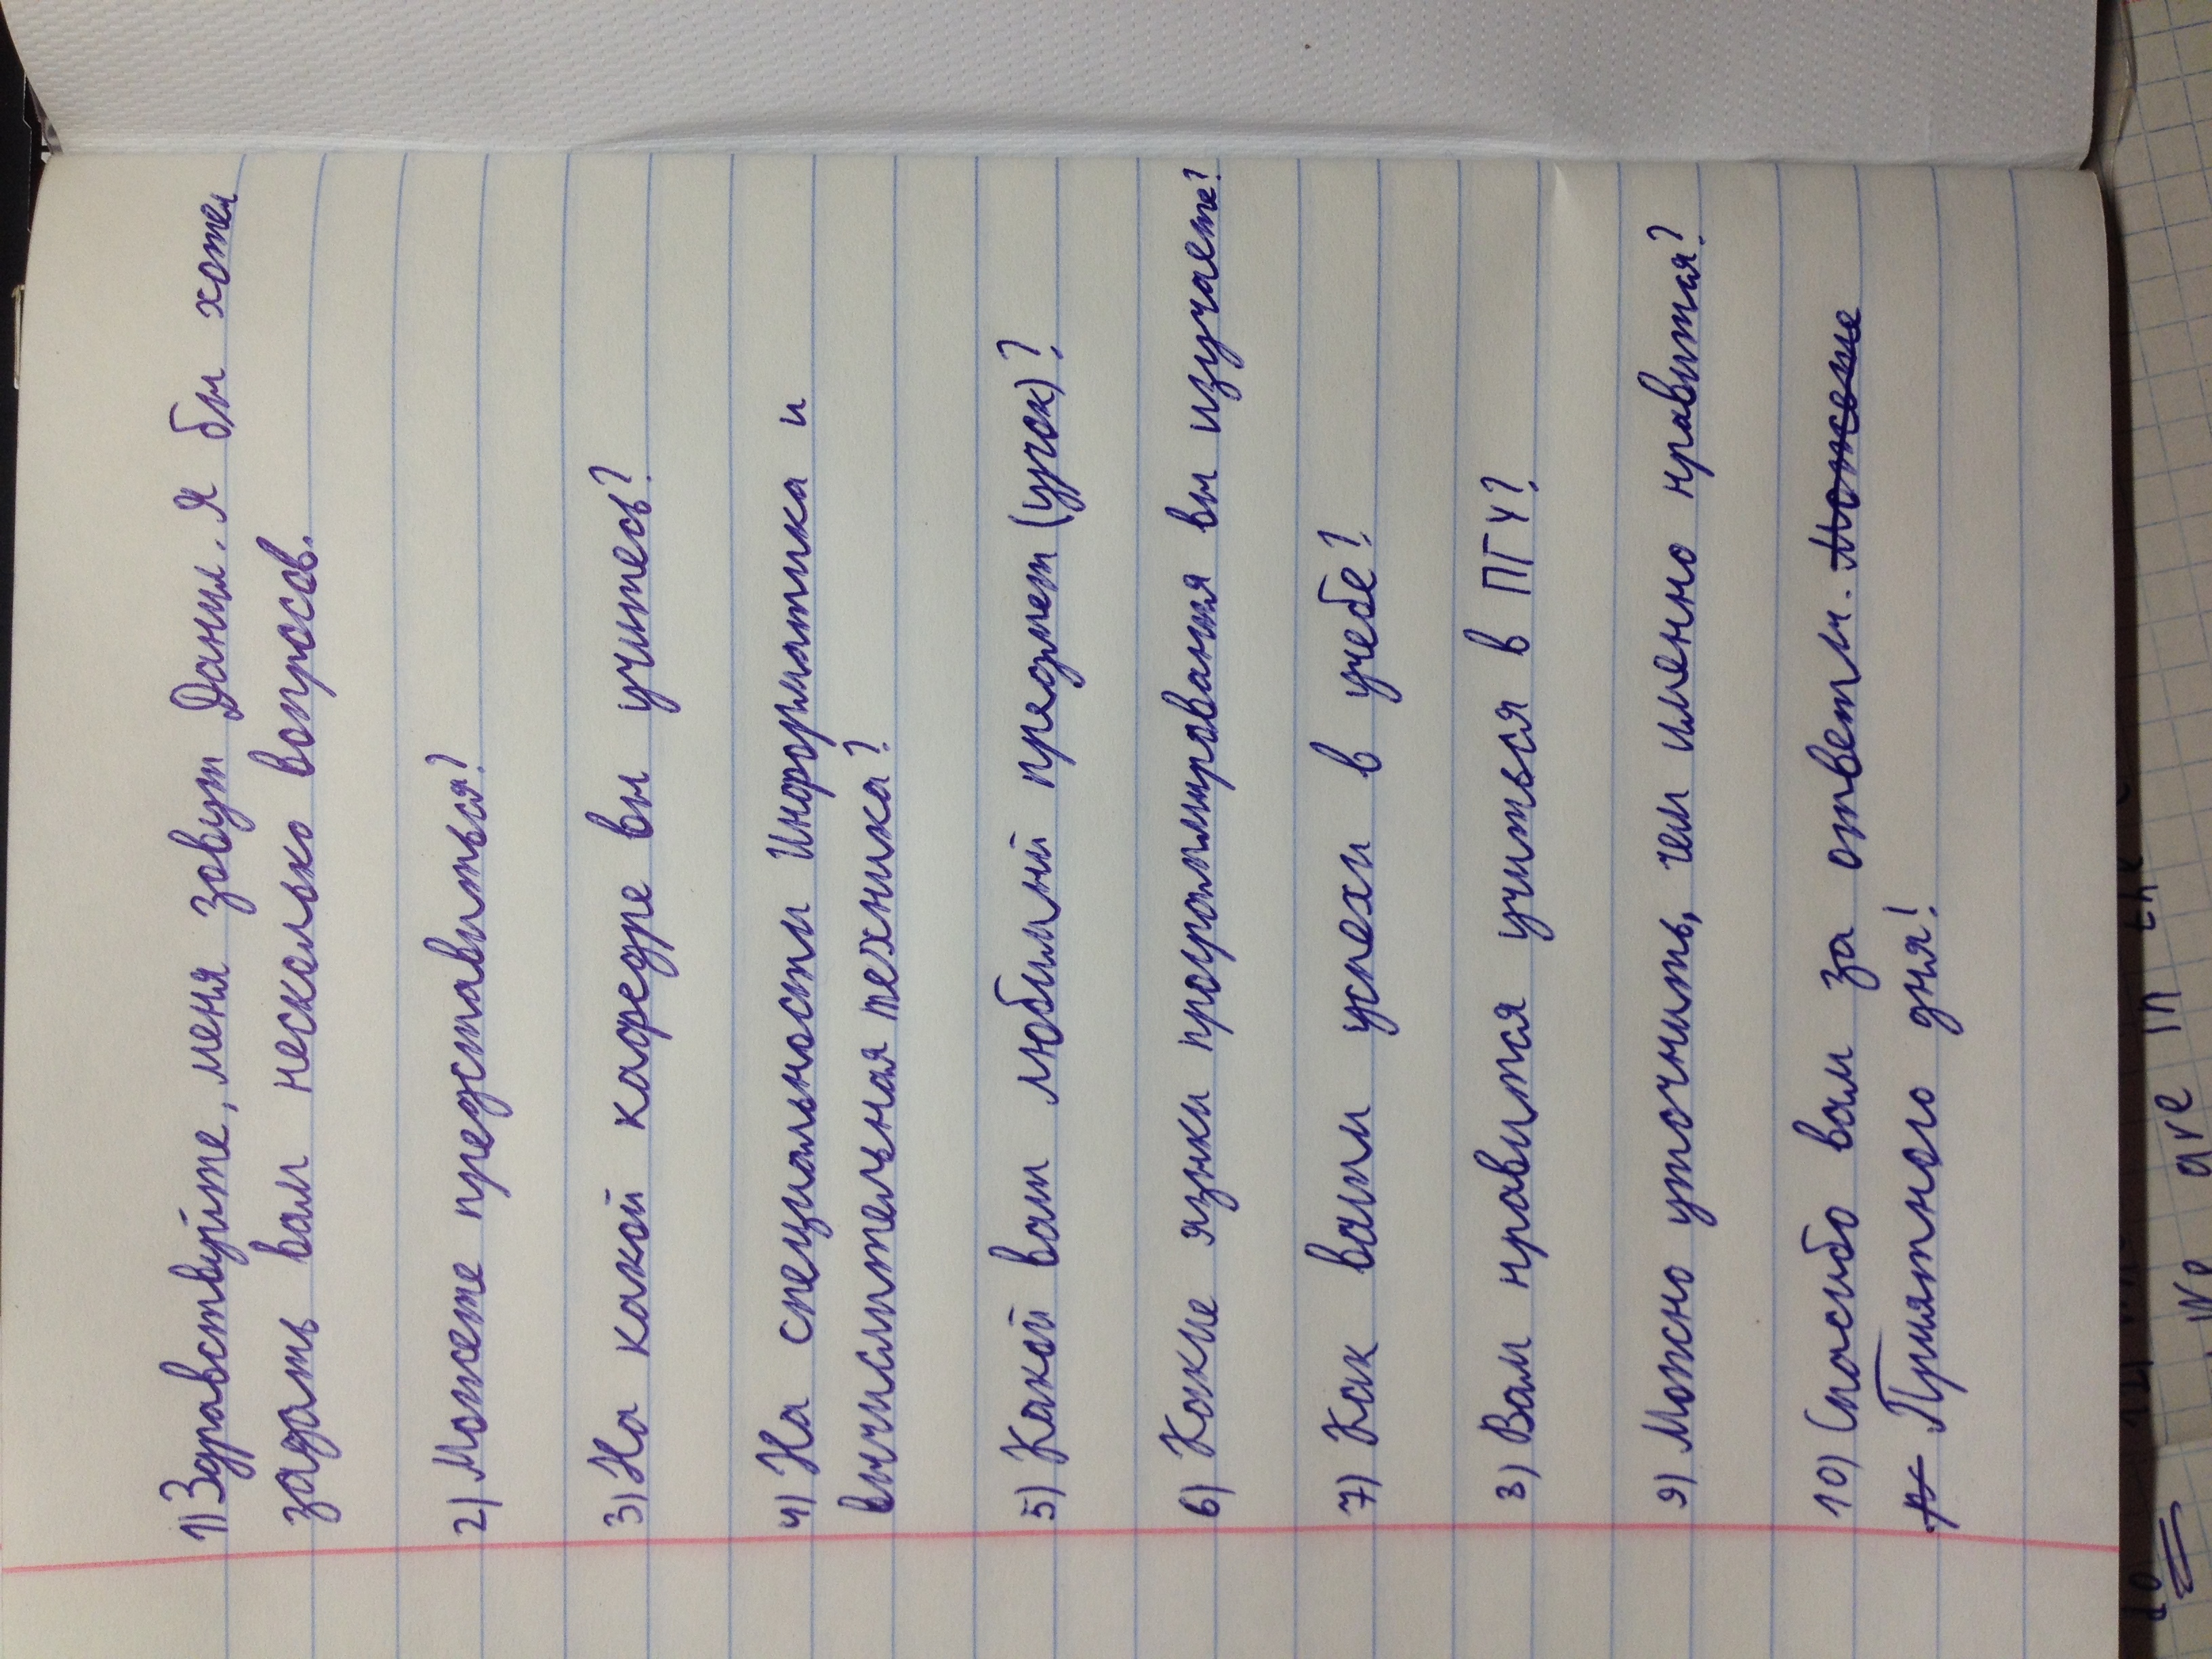 1) Здравствуйте, меня зовут Данил. Я бы хотел
задать вам несколько вопросов.
2) Можете представиться?
3) На какой кафедре вы учитесь?
4) На специальности Информатика и
вычислительная техника?
5) Какой ваш любимый предмет (урок)?
6) Какие языки программирования вы изучаете?
7) Как ваши успехи в учебе?
8) Вам нравится учиться в ПГУ?
9) Можно уточнить, чем именно нравится?
10) Спасибо вам за ответы.
Приятного дня!
We are in the